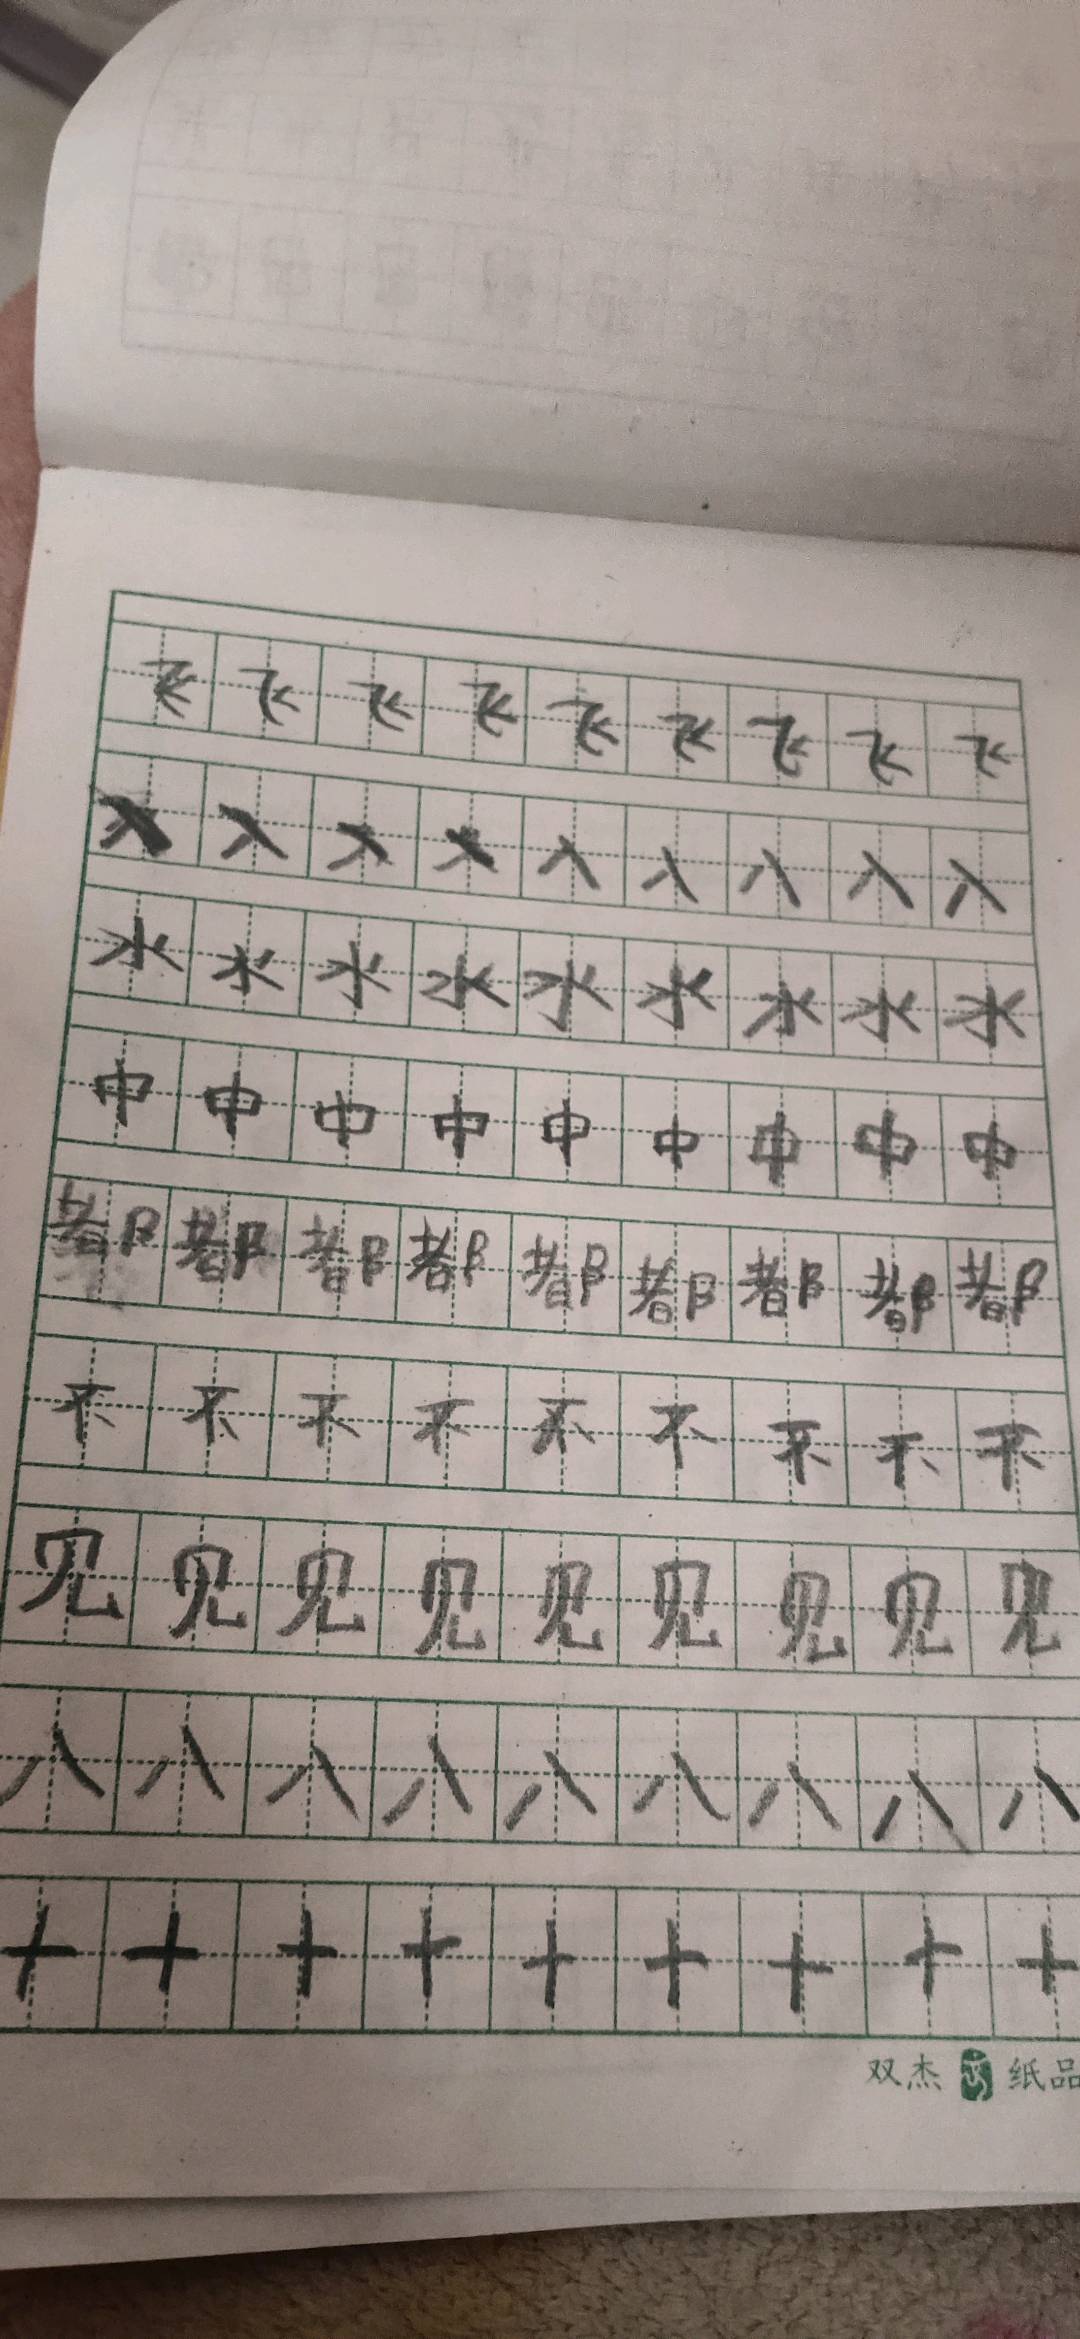 飞飞飞飞飞飞飞飞飞
入入入入入入入入入
水水水水水水水水水
中中中中中中中中中
都都都都都都都都都
不不不不不不不不不
见见见见见见见见见
八八八八八八八八八
十十十十十十十十十
双杰 纸品